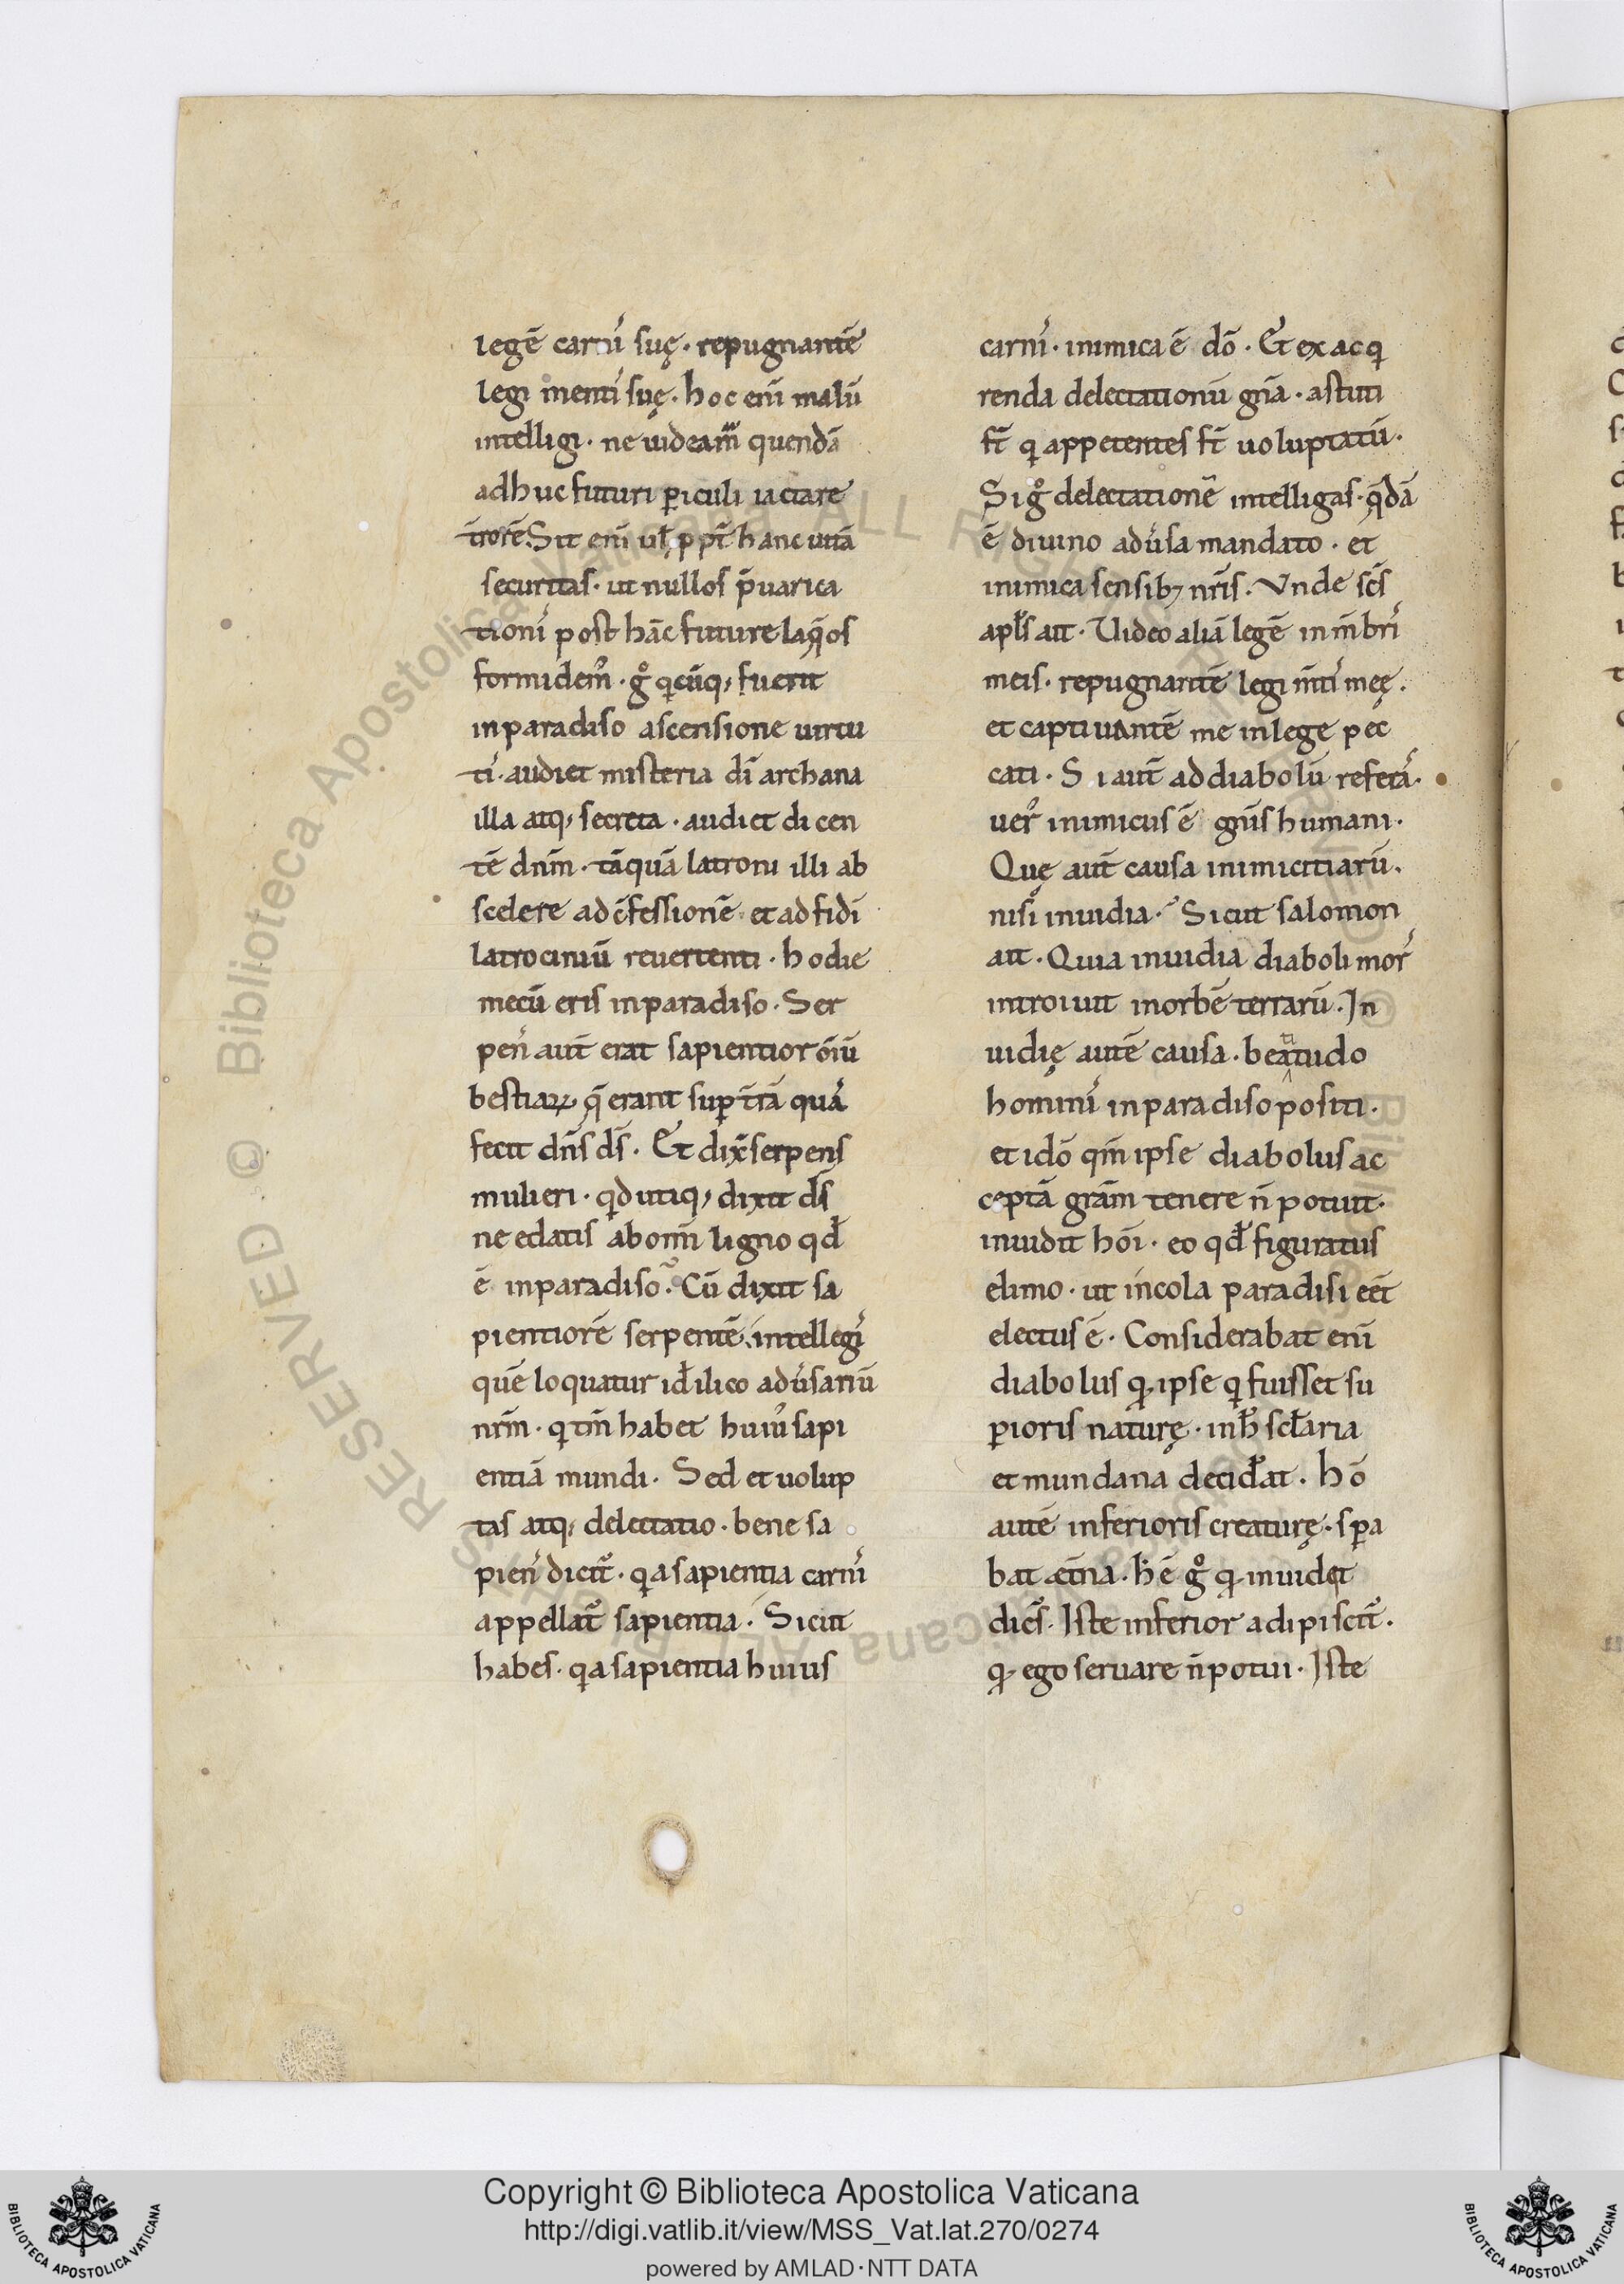 legē carniˢ suę · repugnantē
legi mentiˢ suę · hoc eni̅ malū
intelligi · ne uideam̃ quendā
adhuc futuri ꝑiculi iactare
t̄rorē Sit eni̅ ul̵ ꝓpt̄ hanc uitā
securitas · ut nullos p̄uarica
tioniˢ post hāc future laq̄os
formidem᷒ · gͦ qicūq; fuerit
in paradiso ascensione uirtu
tiˢ · audiet misteria di̅ archana
illa atq; secreta · audiet dicen
tē dnm̅ · tāquā latroni illi ab
scelere ad c̄fessionē et ad fidi̅
latrociniū reuertenti · hodie
mecū eris in paradiso · Ser
penˢ aut̄ erat sapientior oi̅ū
bestiaꝝ q̄ erant suꝑ t̄rā quaˢ
fecit dn̅s ds̅ · Et dix̄ serpens
mulieri · qid utiq; dixit ds̅
ne edatis ab omi̅ ligno qd̵
ē in paradiso · Cū dixit sa
pientiorē serpentē · intellegiˢ
quē loquatur id̵ ilico adūsariū
nrm̅ · qi tm̅ habet huiu᷒ sapi
entiā mundi · Sed et uolup
tas atq; delectatio · bene sa
pienˢ dicit̃ · qia sapientia carniˢ
appellat̃ sapientia · Sicut
habes · qia sapientia huius
carniˢ · inimica ē dō · Et ex acqi
renda delectationū gn̄a · astuti
st̄ qi appetentes st̄ uoluptatū ·
Si gͦ delectationē intelligas · q̄dā
ē diuino adūsa mandato · et
inimica sensib; nr̄is · Vnde sc̄s
apl̵s ait · Uideo aliā legē in m̄briˢ
meis · repugnantē legi m̄tiˢ meę ·
et captiuantē me in lege pec
cati · Si aut̄ ad diabolū referaˢ ·
uer᷒ inimicus ē gn̄is humani ·
Quę aut̄ causa inimicitiarū ·
nisi inuidia · Sicut salomon
ait · Quia inuidia diaboli morˢ
introiuit in orbē terrarū · In
uidię autē causa · beatitudo
hominiˢ in paradiso positi ·
et idō qm̄ ipse diabolus ac
ceptā grām tenere n̄ potuit ·
inuidit hōi · eo qd̵ figuratus
e limo · ut incola paradisi eēt
electus ē · Considerabat eni̅
diabolus qͥ ipse qi fuisset su
ꝑioris naturę · in h̵ scl̵aria
et mundana decid̵at · hō
autē inferioris creaturę · sꝑa
bat æt̄na · h̵ ē gͦ qͥ inuidet
dicēs · Iste inferior adipiscit̃ ·
qͥ ego seruare n̄ potui · Iste
Biblioteca Apostolica Vaticana ALL RIGHTS RESERVED ©
Copyright © Biblioteca Apostolica Vaticana
http://digi.vatlib.it/view/MSS_Vat.lat.270/0274
powered by AMLAD·NTT DATA
BIBLIOTECA APOSTOLICA VATICANA
BIBLIOTECA APOSTOLICA VATICANA